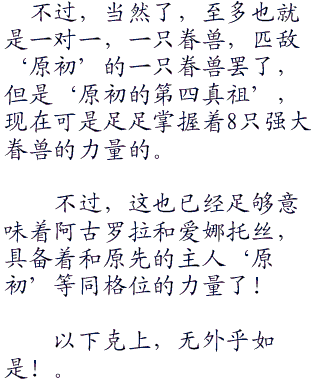 不过，当然了，至多也就
是一对一，一只眷兽，匹敌
‘原初’的一只眷兽罢了，
但是‘原初的第四真祖’，
现在可是足足掌握着8只强大
眷兽的力量的。
不过，这也已经足够意
味着阿古罗拉和爱娜托丝，
具备着和原先的主人‘原
初’等同格位的力量了！
以下克上，无外乎如
是！。